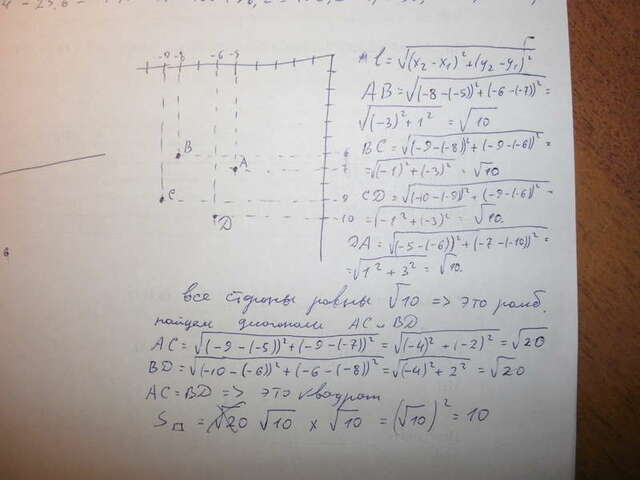 -9 -8 -6 -5
B
A
C
D
6
7
9
10
l = √(x₂ - x₁)² + (y₂ - y₁)²
AB = √(-8-(-5))² + (-6-(-7))² =
√(-3)² + 1² = √10
BC = √(-9-(-8))² + (-9-(-6))² =
= √(-1)² + (-3)² = √10
CD = √(-10-(-9))² + (-9-(-6))² =
= √(-1² + (-3)² = √10.
DA = √(-5-(-6))² + (-7-(-10))² =
= √1² + 3² = √10.
все стороны равны √10 => это ромб.
найдем диагонали AC и BD
AC = √(-9-(-5))² + (-9-(-7))² = √(-4)² + (-2)² = √20
BD = √(-10-(-6))² + (-6-(-8))² = √(-4)² + 2² = √20
AC = BD => это квадрат
S□ = √20 √10 x √10 = (√10)² = 10